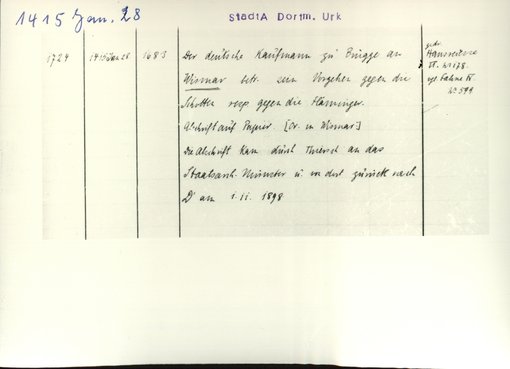 1415 Jan. 28
StadtA Dortm. Urk
1724
1415 Jan 28
1683
Der deutsche Kaufmann zu Brügge an
Wismar betr. sein Vorgehen gegen die
Schotten resp gegen die Flaminger.
Abschrift auf Papier. [Or. in Wismar]
Die Abschrift kam durch an das
Staatsarch. Münster u. von dort zurück nach
D am 1. 11. 1898
gedr.
Hanserecesse
VI. No 178.
vgl. Fahne IV
No 599